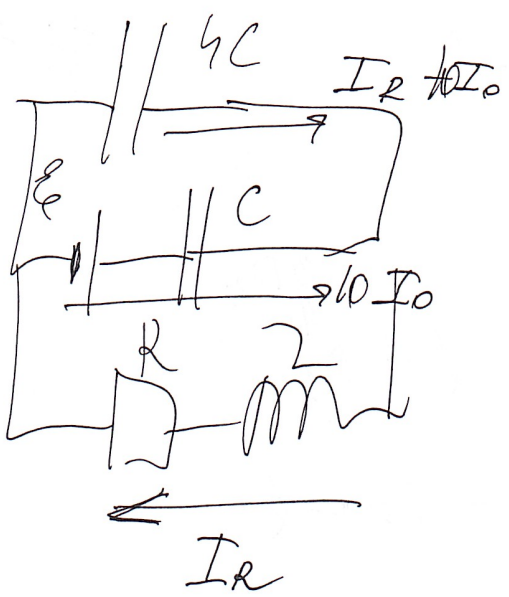 4C
I_R + 10I_0
ℰ
C
10 I_0
R
L
I_R